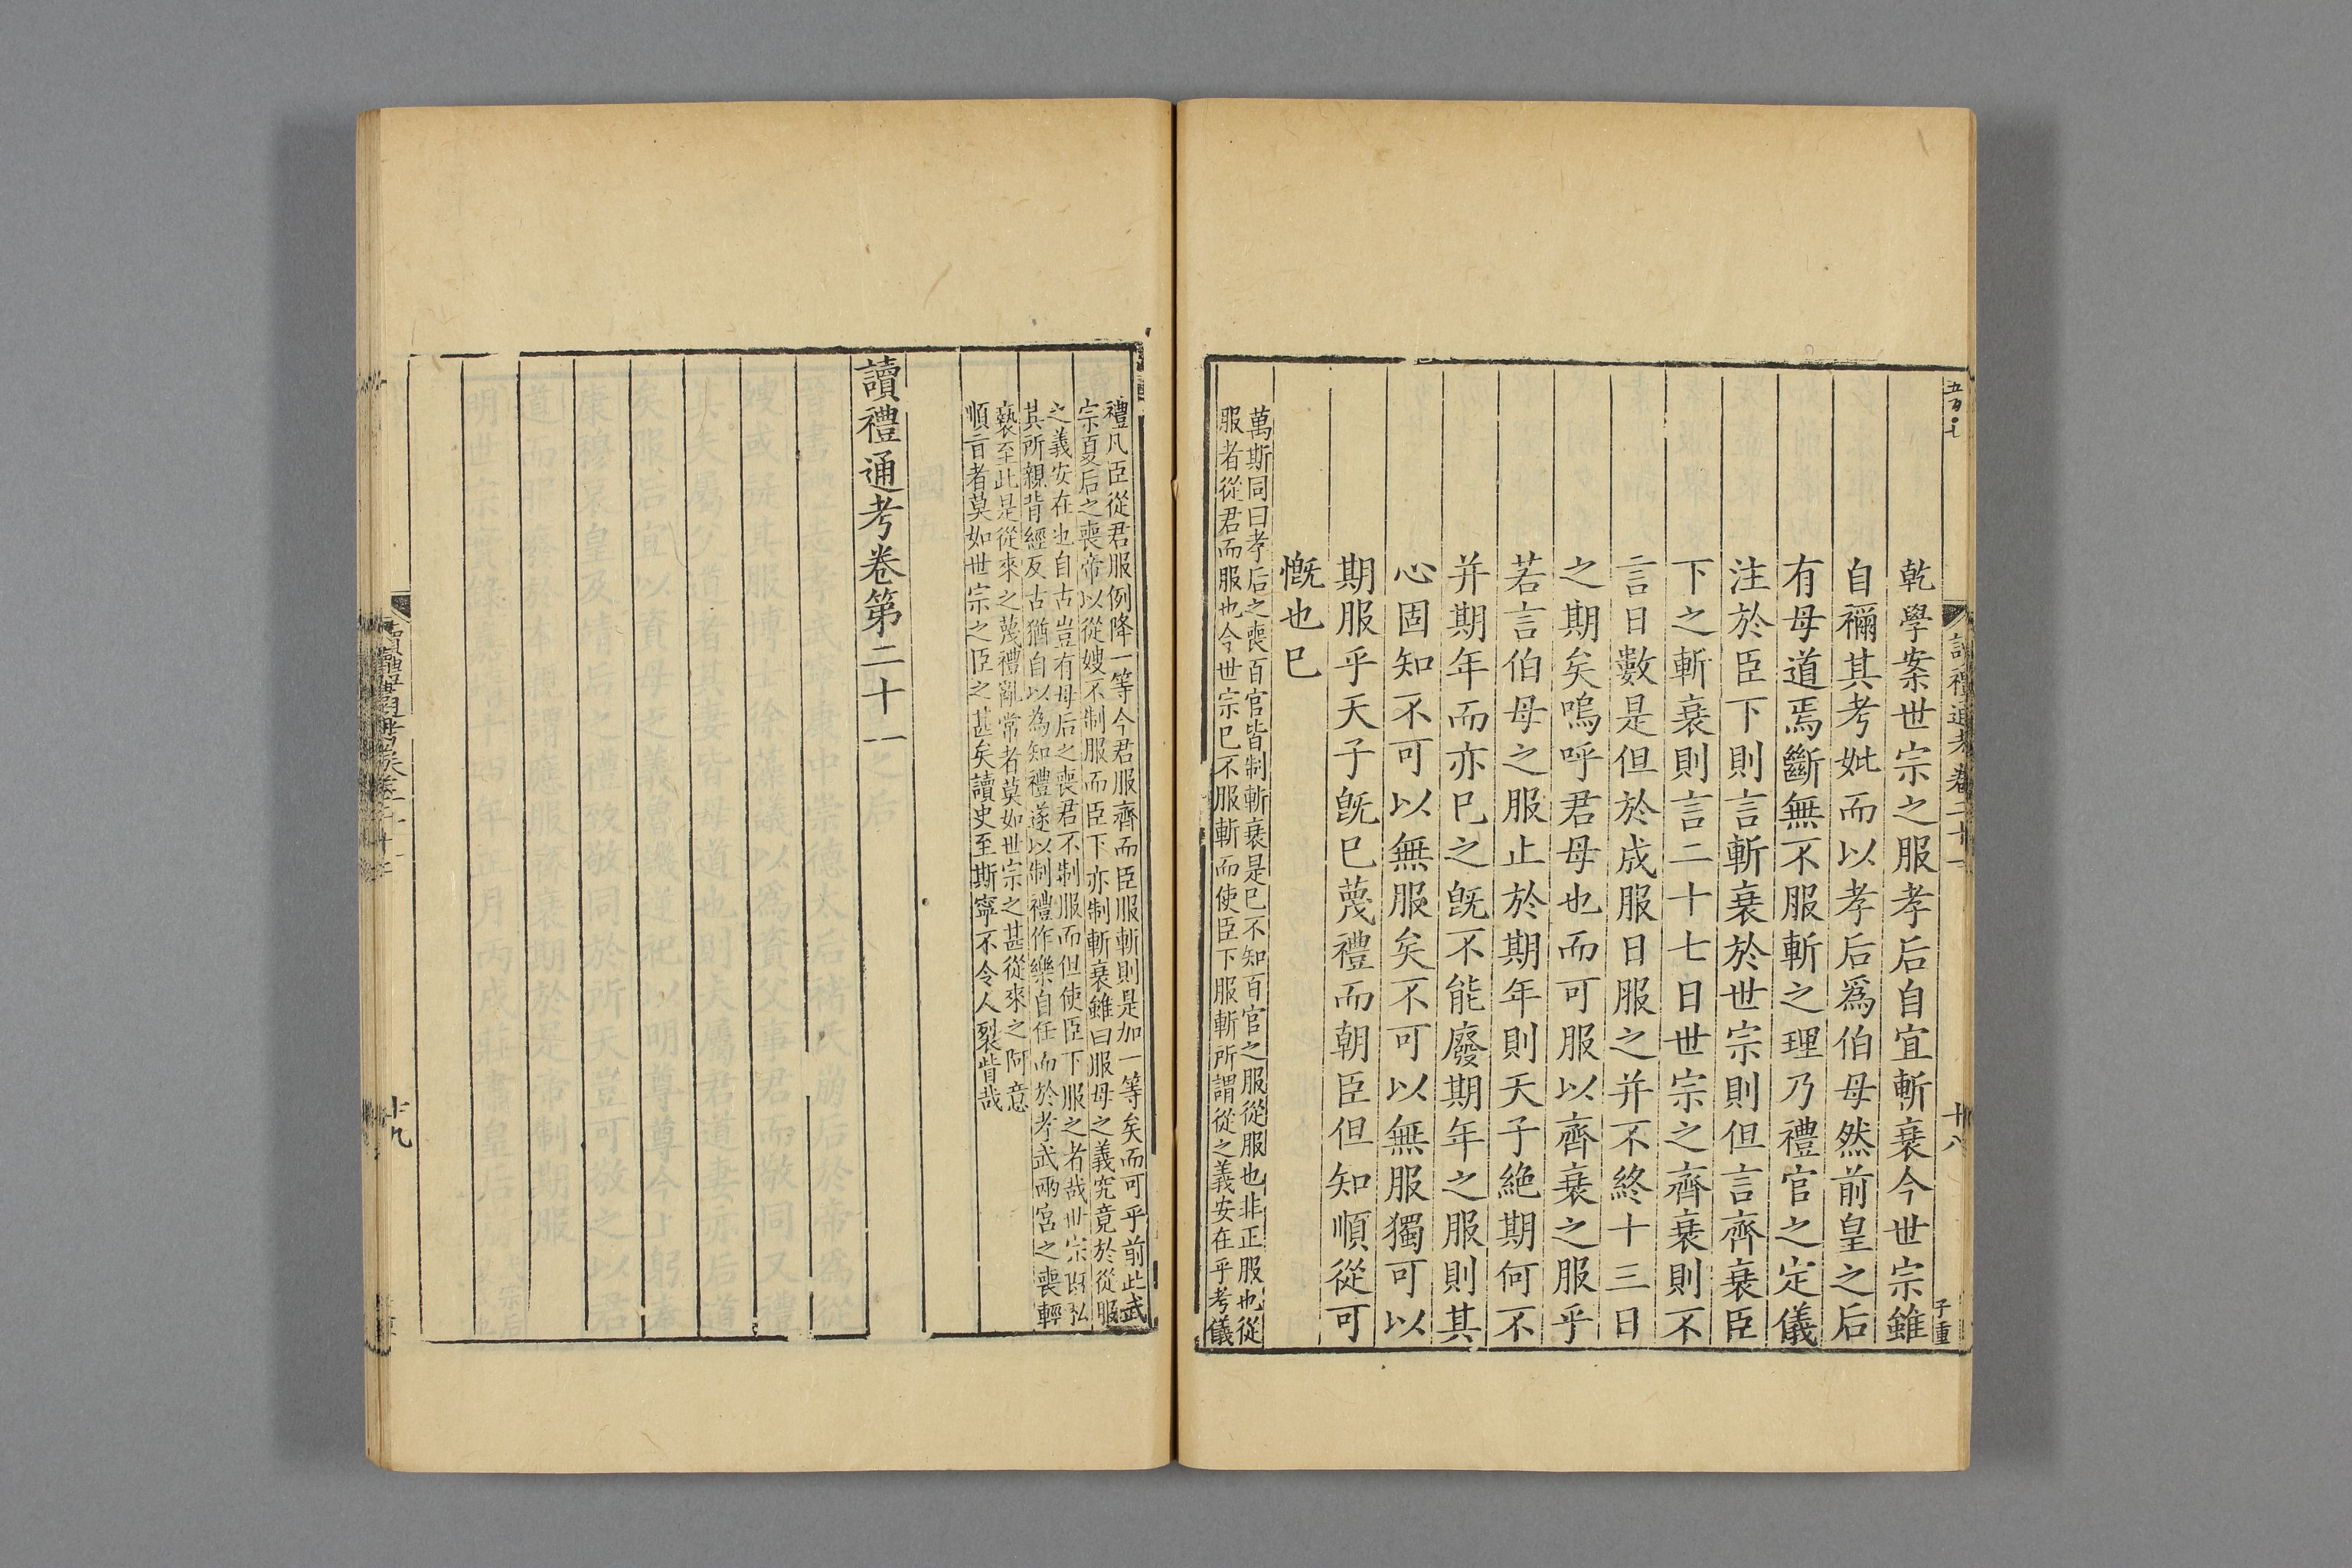 乾學案世宗之服孝后自宜斬衰今世宗雖
自禰其考妣而以孝后爲伯母然前皇之后
有母道焉斷無不服斬之理乃禮官之定儀
注於臣下則言斬衰於世宗則但言齊衰臣
下之斬衰則言二十七日世宗之齊衰則不
言日數是但於成服日服之并不終十三日
之期矣嗚呼君母也而可服以齊衰之服乎
若言伯母之服止於期年則天子絶期何不
并期年而亦已之旣不能廢期年之服則其
心固知不可以無服矣不可以無服獨可以
期服乎天子旣已蔑禮而朝臣但知順從可
慨也已
萬斯同曰孝后之喪百官皆制斬衰是已不知百官之服從服也非正服也從
服者從君而服也今世宗已不服斬而使臣下服斬所謂從之義安在乎考儀
禮凡臣從君服例降一等今君服齊而臣服斬則是加一等矣而可乎前此武
宗夏后之喪帝以從嫂不制服而臣下亦制斬衰雖曰服母之義究竟於從服
之義安在也自古豈有母后之喪君不制服而但使臣下服之者哉世宗
其所親背經反古猶自以為知禮遂以制禮作樂自任而於孝武兩宮之喪輕
褻至此是從來之蔑禮亂常者莫如世宗之甚從來之阿意
順旨者莫如世宗之臣之甚矣讀史至斯寧不令人裂眥哉
讀禮通考卷第二十一
讀禮通考卷二十一
十八
子重
十九